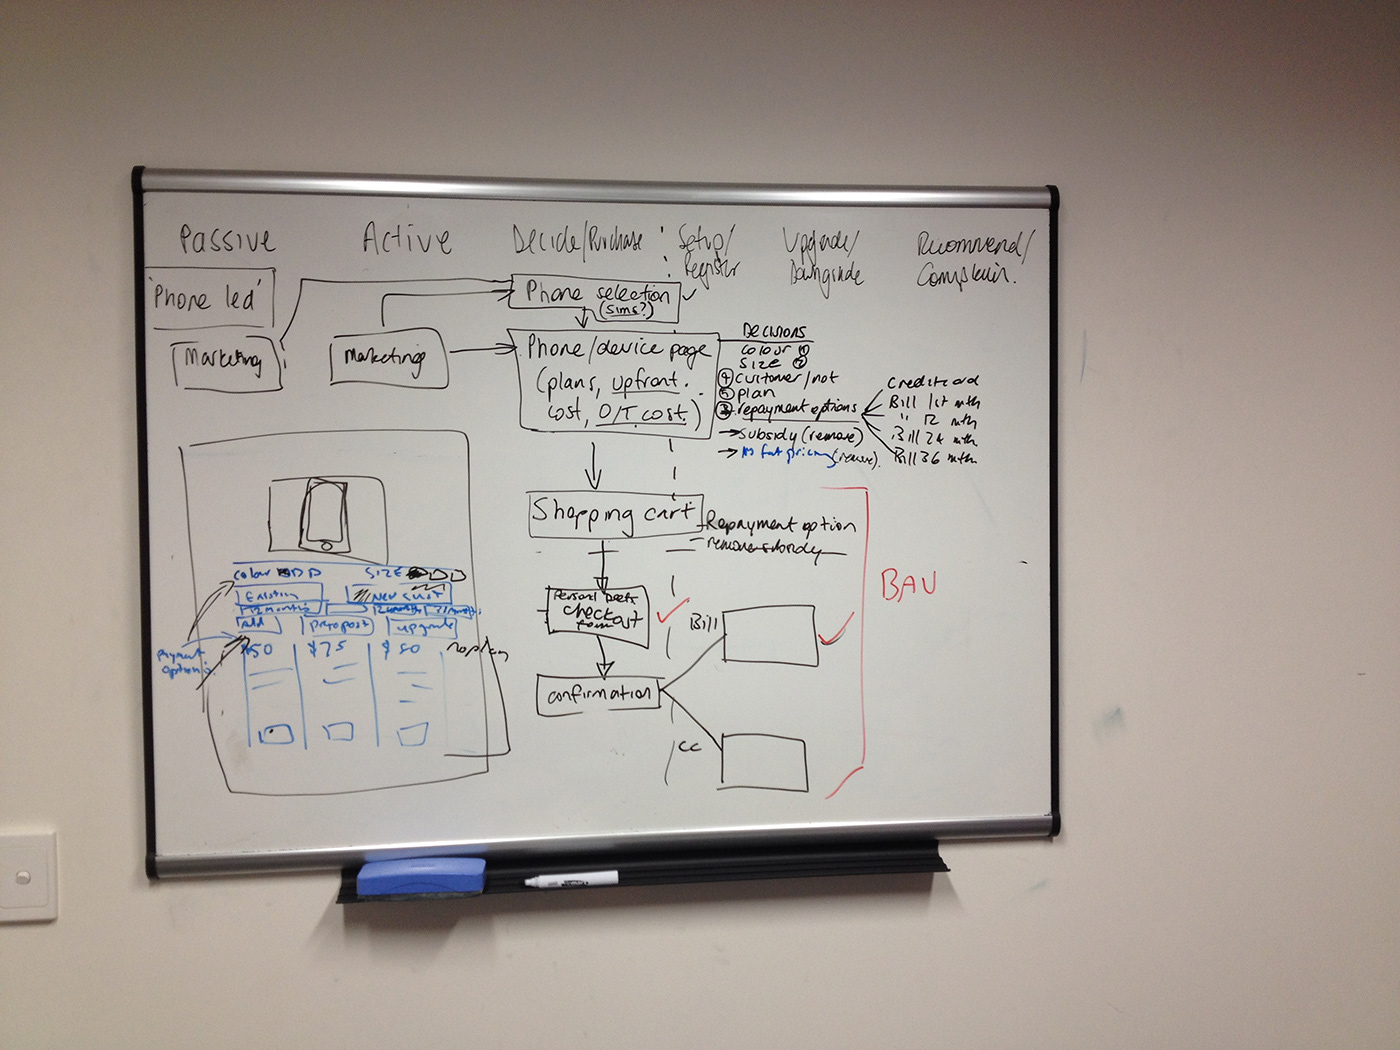 Passive
Active
Decide/Purchase
Setup/
Register
Upgrade/
Downgrade
Recommend/
Complain.
'Phone led'
Marketing
Marketing
Phone selection
(sims?)
Phone/device page
(plans, upfront
cost, O/T cost.)
DECISIONS
colour ①
SIZE ②
④ customer/not
⑤ plan
③ repayment options
→ subsidy (remove)
→ pricing (remove).
Credit card
Bill 1st mth
" 12 mth
Bill 24 mth
Bill 36 mth
Shopping cart
Repayment option
remove subsidy
Personal
check
out
confirmation
Bill
CC
BAU
colour
SIZE
Existing
New cust
12 months
24 months
Add
pre-post
upgrade
Payment
options
$50
$75
$80
no plan